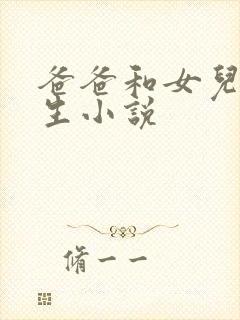 爸爸和女兒
生小說
脩一一